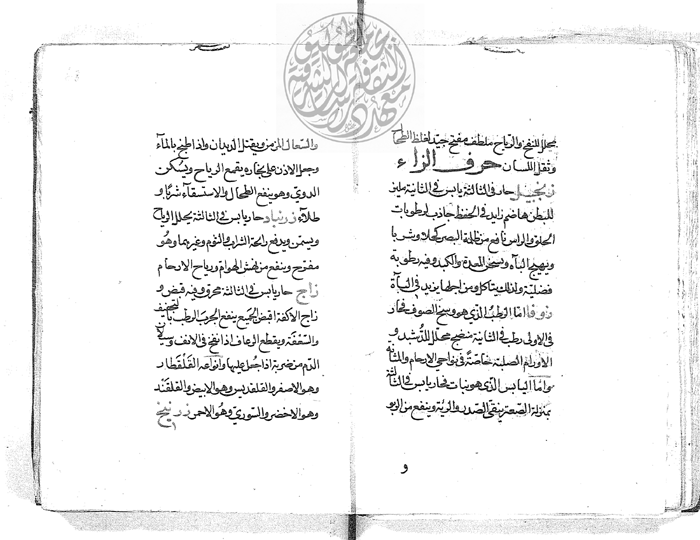 محلل للنفخ والرياح ملطف مفتح جيد لغلظ الطحال
وثقل اللسان حرف الزاء
زنجبيل حار في الثالثة يابس في الثانية ملين
للبطن هاضم زايد في الحفظ جاذب لرطوبات
الحلق والراس نافع من ظلمة البصر كحلا وشربا
ويهيج الباه ويسخن المعدة والكبد وفيه رطوبة
فضلية ولذلك يتاكل ومن اجلها يزيد في الباة
زوفا اما الرطب الذي هو وسخ الصوف فحار
في الاولى رطب في الثانية منضج محلل للدشبد و
الاورام الصلبة خاصة في نواحي الارحام والمثانة
واما اليابس الذي هو نبات فحار يابس في الثالثة
بمنزلة الصعتر ينقى الصدر والرية وينفع من الربو
و
والسعال المزمن ويقتل الديدان واذا طبخ بالماء
وجعل الاذن على بخاره يقمع الرياح ويسكن
الدوي وهو ينفع الطحال والاستسقاء شربا و
طلاء زرنباد حار يابس في الثالثة يحلل الرياح
ويسمن ويدفع رائحة الشراب والثوم وغيرهما وهو
مفتح وينفع من نهش الهوام ورياح الارحام
زاج حار يابس في الثالثة محرق وفيه قبض و
زاج الاكفة اقبض الجميع ينفع الجرب الرطب بالتجفيف
والسقفة ويقطع الرعاف اذا نفخ في الانف وسيلان
الدم من ضربة اذا جعل عليها وانواعه القلقطار
وهو الاصفر والقلقديس وهو الابيض والقلقند
وهو الاخضر والسوري وهو الاحمر زرنيخ